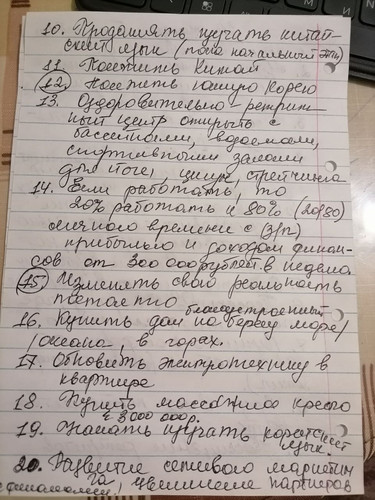 10. Продолжать изучать китай-
ский язык (пока начальный этап)
11. Посетить Китай
12. Посетить южную Корею
13. Оздоровительно-
ный центр открыть с
бассейнами, водоемами,
спортивными залами
для йоги, цигун, стрейчинга
14. Если работать, то
20% работать и 80% (20/80)
личного времени с (з/п)
прибылью и доходом финан-
сов от 300 000 рублей в неделю
15. Изменять свою реальность
постоянно
благоустроенный
16. Купить дом на берегу моря/
/океана, в горах.
17. Обновить электротехнику в
квартире
18. Купить массажное кресло
≈ 3000 000 р.
19. Начать изучать корейский
язык.
20. Развитие сетевого
увеличение партнеров